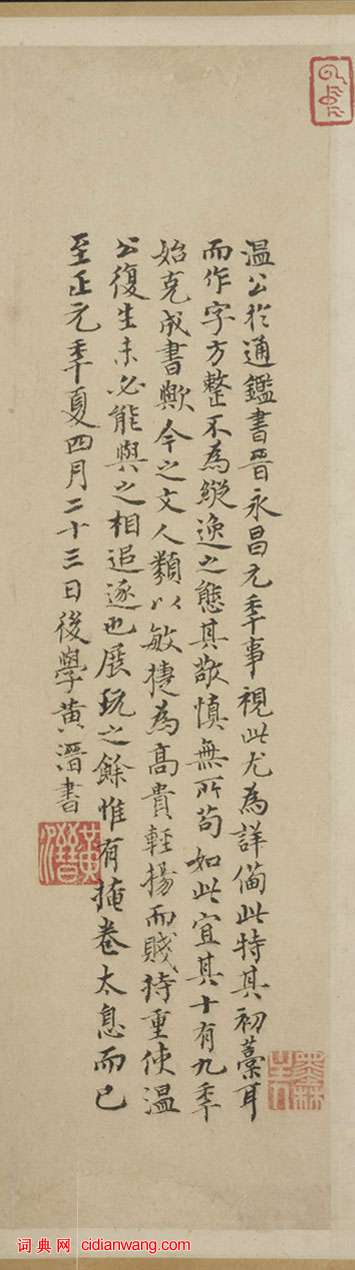 温公於通鑑書晉永昌元年事視此尤為詳備此特其初藁耳
而作字方整不為縱逸之態其敬慎無所苟如此宜其十有九年
始克成書歟今之文人類以敏捷為高貴輕揚而賤持重使温
公復生未必能與之相追逐也展玩之餘惟有掩卷太息而已
至正元年夏四月二十三日後學黄溍書
黄溍
墨林
词典网 cidianwang.com